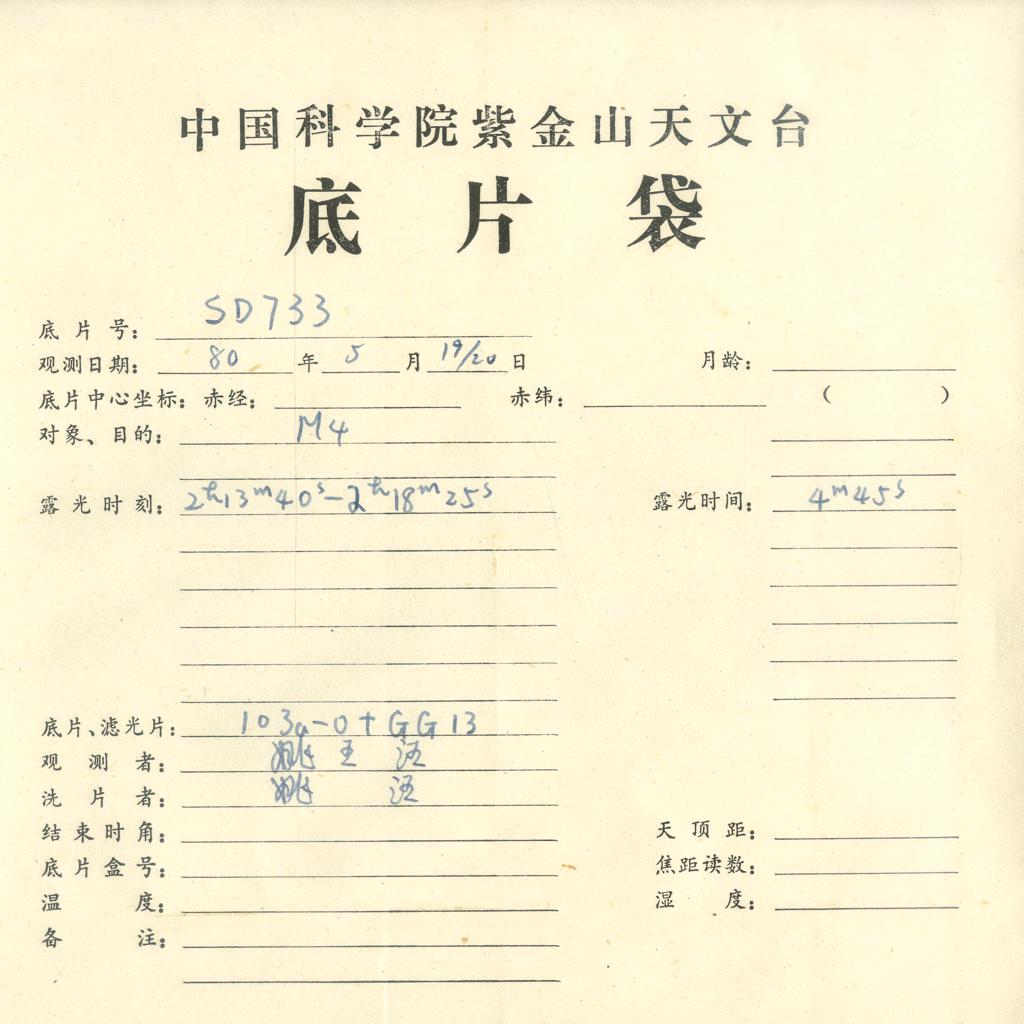 中国科学院紫金山天文台
底片袋
底片号: SD733
观测日期: 80年5月19/20日 月龄:
底片中心坐标: 赤经: 赤纬: ( )
对象、目的: M4
露光时刻: 2h13m40s-2h18m25s 露光时间: 4m45s
底片、滤光片: 103a-O+GG13
观测者: 姚 王 汪
洗片者: 姚 汪
结束时角: 天顶距:
底片盒号: 焦距读数:
温度: 湿度:
备注: